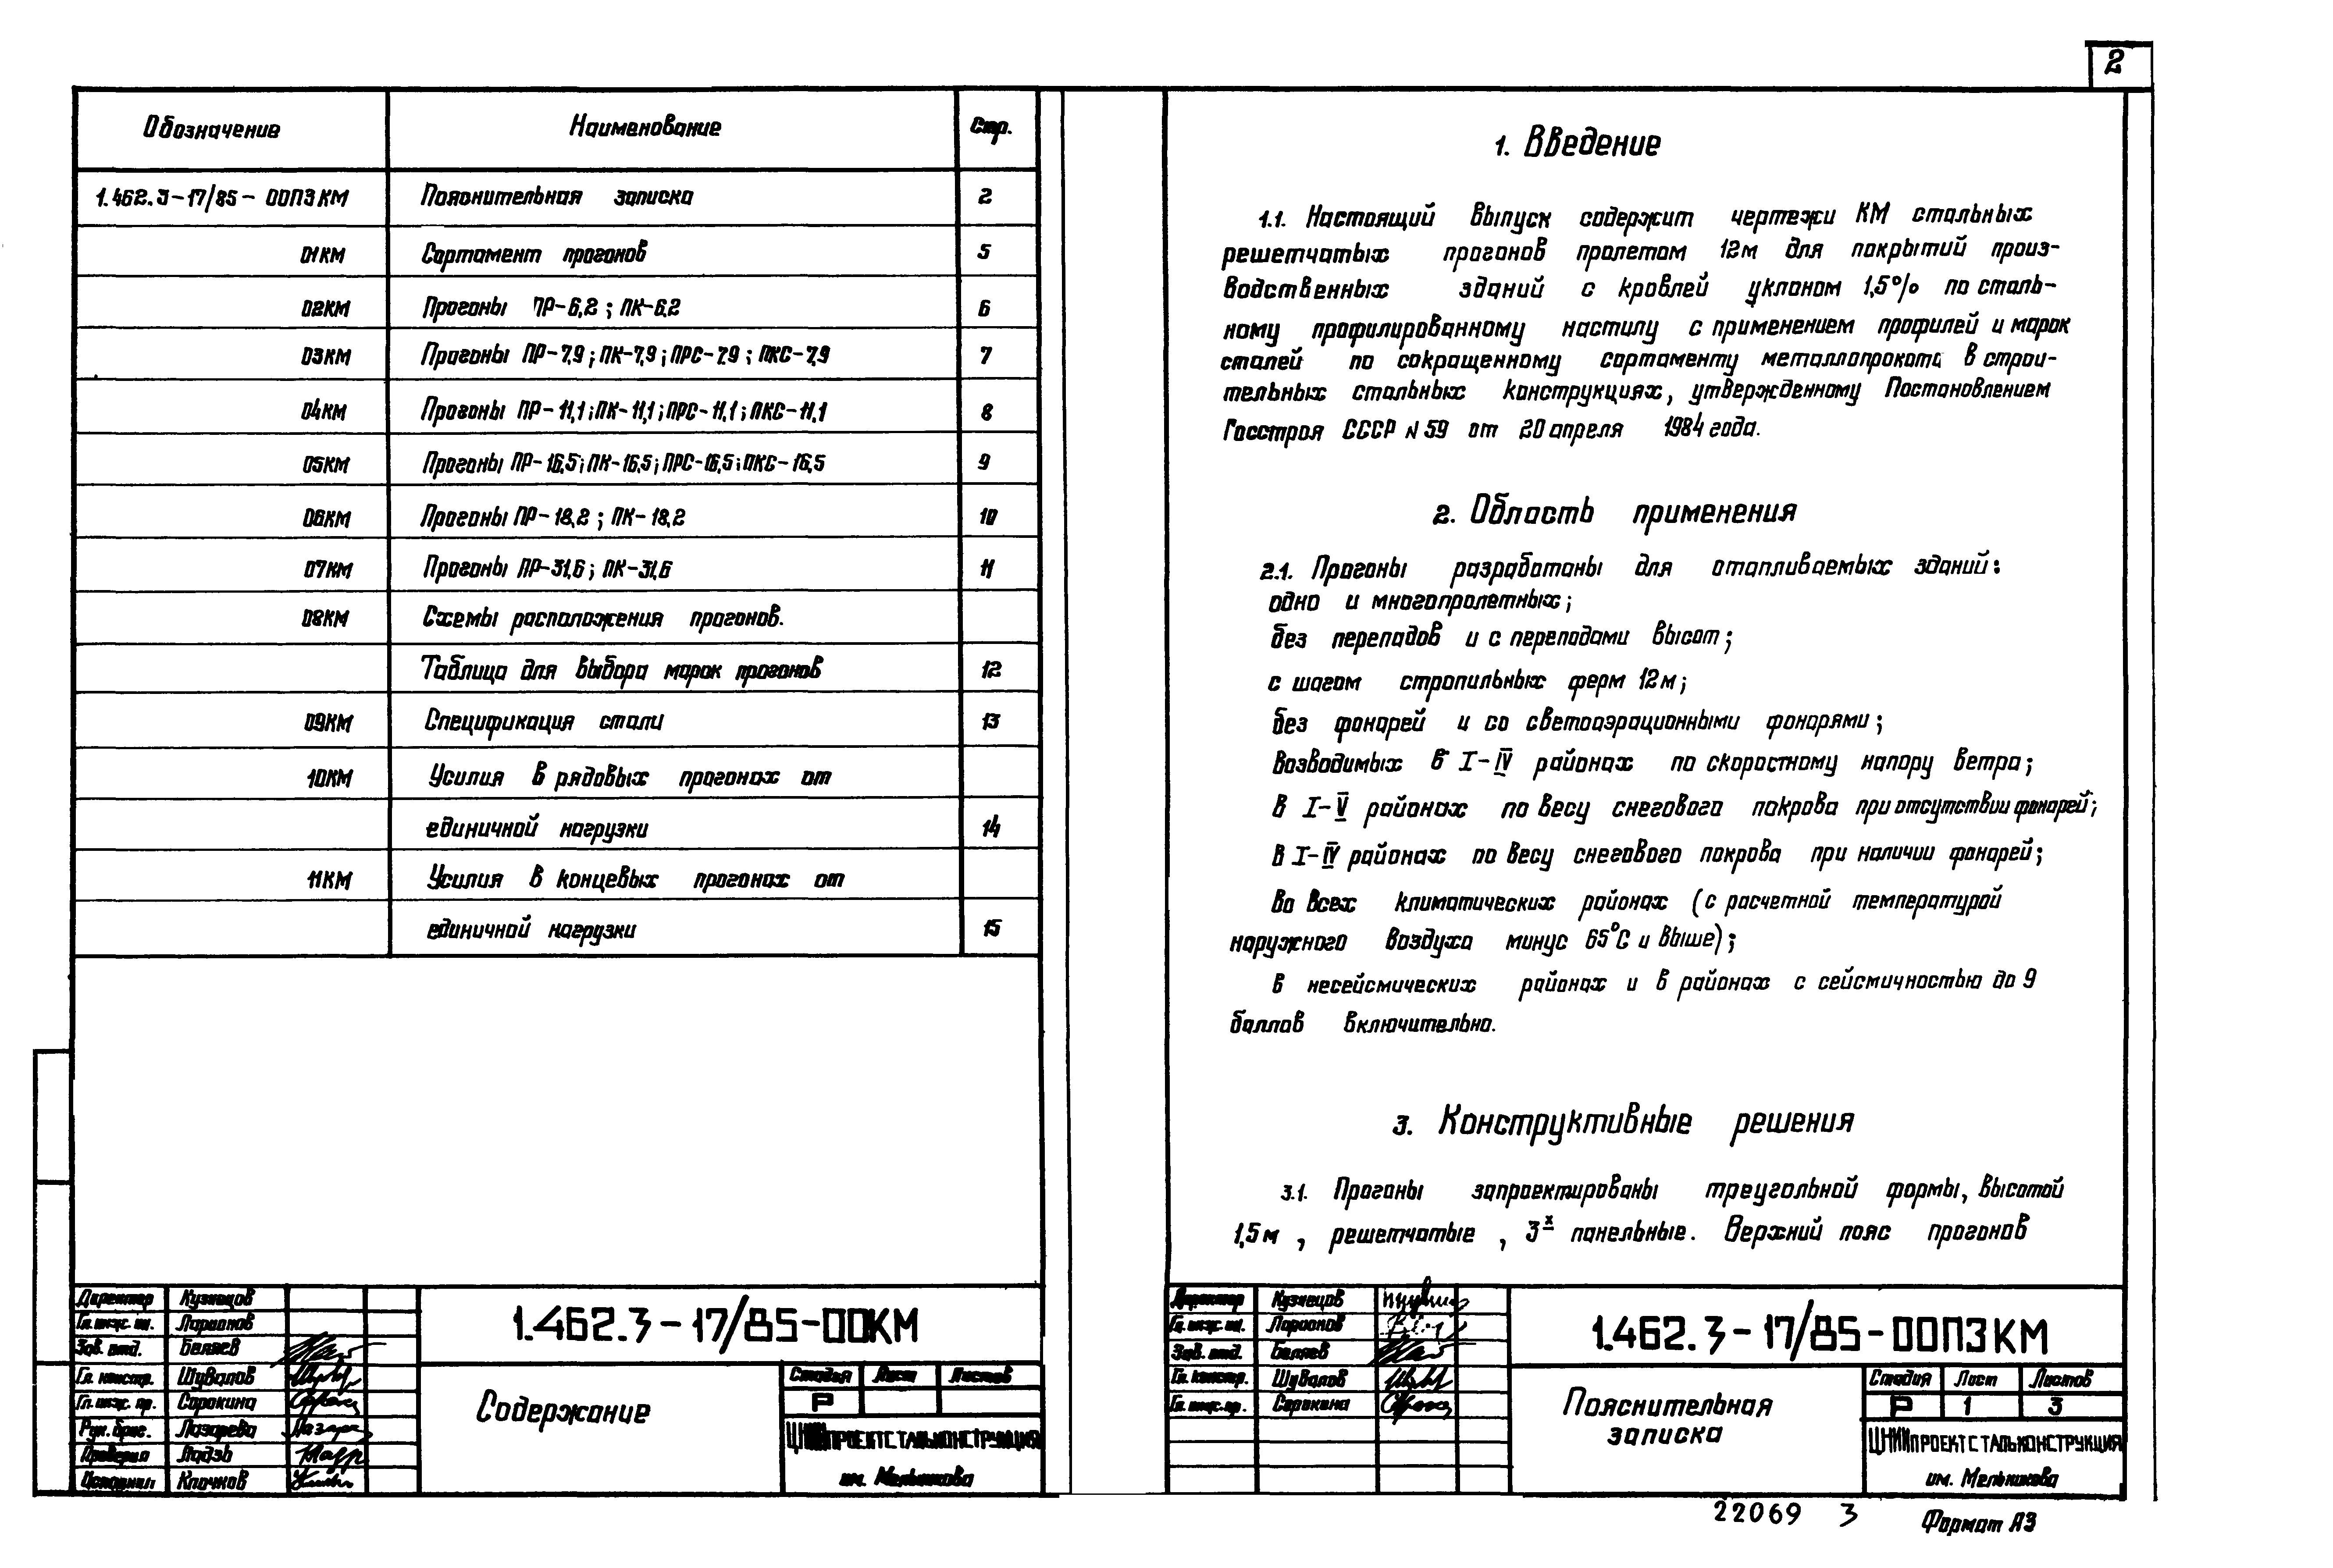 2
Обозначение Наименование Стр.
1.462.3-17/85-00ПЗКМ Пояснительная записка 2
01КМ Сортамент прогонов 5
02КМ Прогоны ПР-6,2; ПК-6,2 6
03КМ Прогоны ПР-7,9; ПК-7,9; ПРС-7,9; ПКС-7,9 7
04КМ Прогоны ПР-11,1; ПК-11,1; ПРС-11,1; ПКС-11,1 8
05КМ Прогоны ПР-16,5; ПК-16,5; ПРС-16,5; ПКС-16,5 9
06КМ Прогоны ПР-18,2; ПК-18,2 10
07КМ Прогоны ПР-31,6; ПК-31,6 11
08КМ Схемы расположения прогонов.
Таблица для выбора марок прогонов 12
09КМ Спецификация стали 13
10КМ Усилия в рядовых прогонах от
единичной нагрузки 14
11КМ Усилия в концевых прогонах от
единичной нагрузки 15
Директор Кузнецов
Гл. инж. ин. Ларионов
Зав. отд. Беляев
Гл. констр. Шувалов
Гл. инж. пр. Сорокина
Рук. бриг. Лазарева
Проверил Ладзь
Исполнил Клочков
1.462.3-17/85-00КМ
Содержание
Стадия Лист Листов
Р
ЦНИИПРОЕКТСТАЛЬКОНСТРУКЦИЯ
им. Мельникова
1. Введение
1.1. Настоящий выпуск содержит чертежи КМ стальных
решетчатых прогонов пролетом 12м для покрытий произ-
водственных зданий с кровлей уклоном 1,5% по сталь-
ному профилированному настилу с применением профилей и марок
сталей по сокращенному сортаменту металлопроката в строи-
тельных стальных конструкциях, утвержденному Постановлением
Госстроя СССР N 59 от 20 апреля 1984 года.
2. Область применения
2.1. Прогоны разработаны для отапливаемых зданий:
одно и многопролетных;
без перепадов и с перепадами высот;
с шагом стропильных ферм 12м;
без фонарей и со светоаэрационными фонарями;
возводимых в I-IV районах по скоростному напору ветра;
в I-V районах по весу снегового покрова при отсутствии фонарей;
в I-IV районах по весу снегового покрова при наличии фонарей;
во всех климатических районах (с расчетной температурой
наружного воздуха минус 65°С и выше);
в несейсмических районах и в районах с сейсмичностью до 9
баллов включительно.
3. Конструктивные решения
3.1. Прогоны запроектированы треугольной формы, высотой
1,5м, решетчатые, 3х панельные. Верхний пояс прогонов
Директор Кузнецов
Гл. инж. ин. Ларионов
Зав. отд. Беляев
Гл. констр. Шувалов
Гл. инж. пр. Сорокина
1.462.3-17/85-00ПЗКМ
Пояснительная
записка
Стадия Лист Листов
Р 1 3
ЦНИИПРОЕКТСТАЛЬКОНСТРУКЦИЯ
им. Мельникова
22069 3
Формат А3